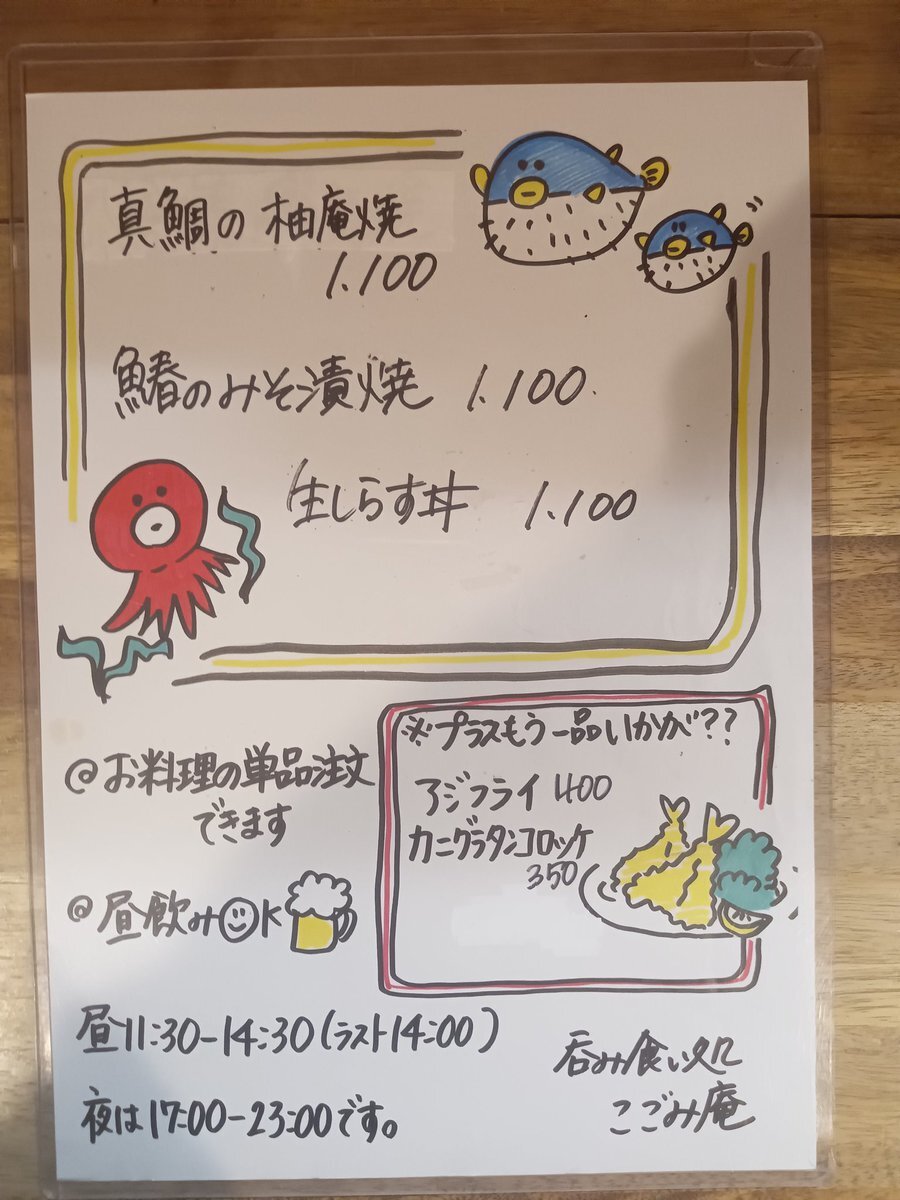 真鯛の柚庵焼
1.100
鰆のみそ漬焼 1.100
生しらす丼 1.100
※プラスもう一品いかが??
アジフライ 400
カニグラタンコロッケ
350
@お料理の単品注文
できます
@昼飲みOK
昼11:30-14:30(ラスト14:00)
夜は17:00-23:00です。
呑み食い処
こごみ庵